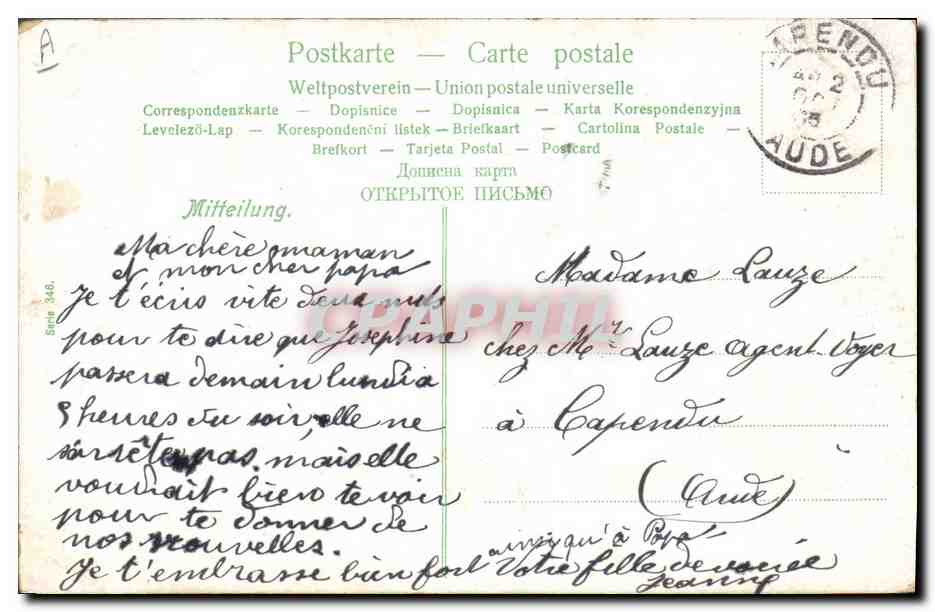 A
Postkarte — Carte postale
Weltpostverein — Union postale universelle
Correspondenzkarte — Dopisnice — Dopisnica — Karta Korespondenzyjna
Levelező-Lap — Korespondenční listek — Briefkaart — Cartolina Postale —
Brefkort — Tarjeta Postal — Postcard
Дописна карта
ОТКРЫТОЕ ПИСЬМО
CAPENDU
2
AUDE
Mitteilung.
Serie 346.
Ma chère maman
et mon cher papa
Je t'écris vite deux mots
pour te dire que Joséphine
passera demain lundi à
heures du soir, elle ne
s'arrête pas mais elle
voudrait bien te voir
pour te donner de
nos nouvelles.
Je t'embrasse bien fort ainsi qu'à Papa
Votre fille dévouée
Jeanne
Madame Lauze
chez Mr Lauze agent-voyer
à Capendu
(Aude)
CPAPHIL